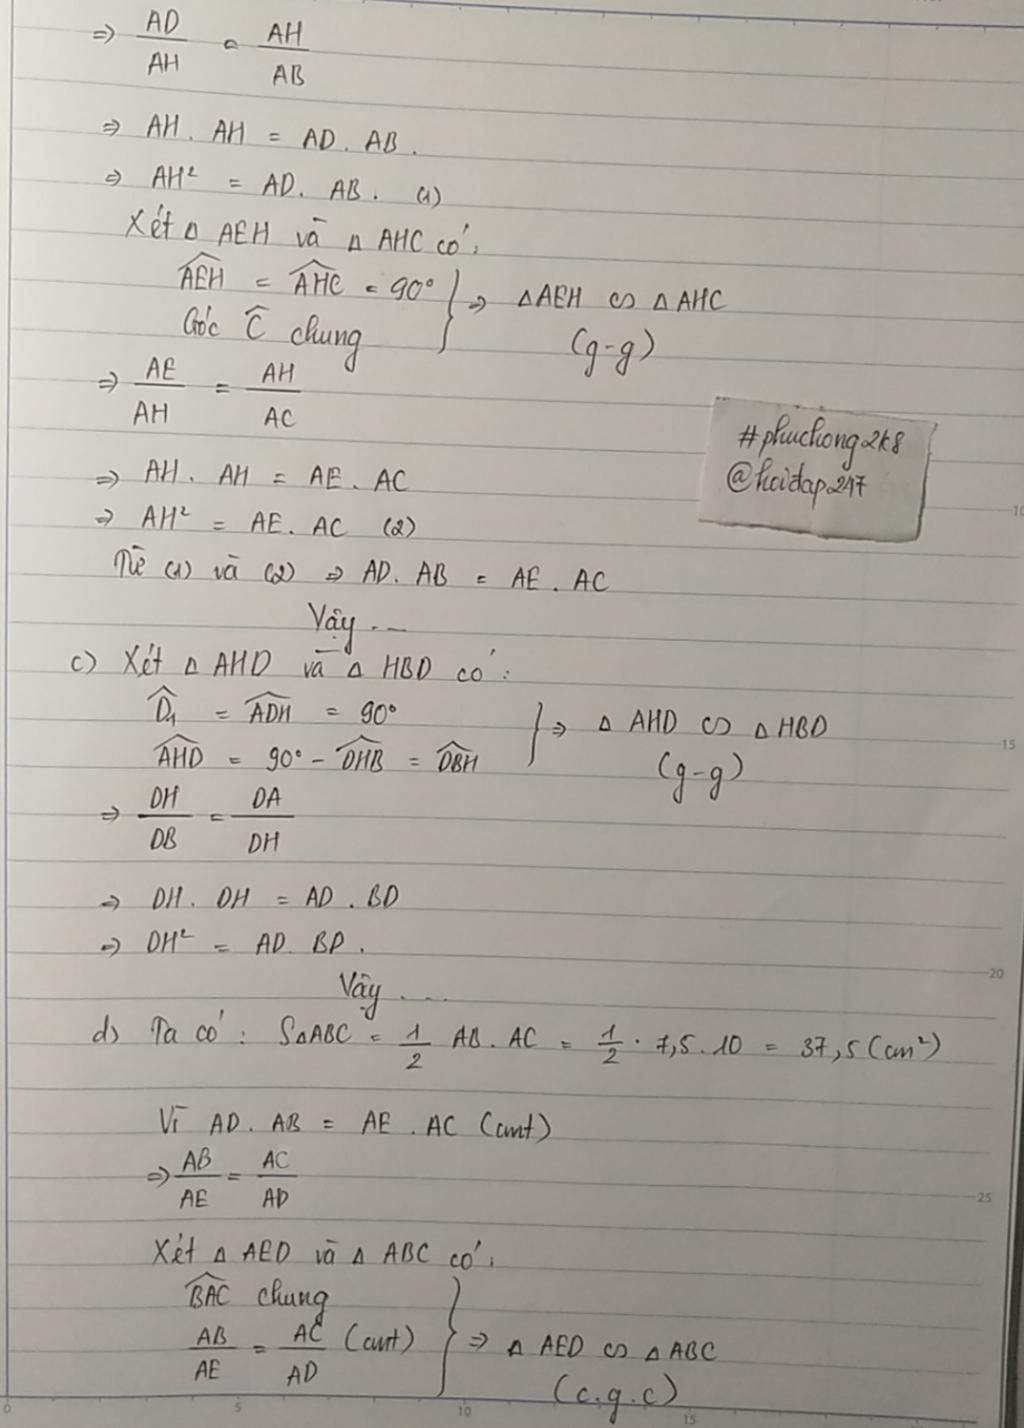 ⇒ AD/AH = AH/AB
⇒ AH . AH = AD . AB .
⇒ AH² = AD . AB . (1)
Xét Δ AEH và Δ AHC có :
AEH = AHC = 90°
Góc C chung
⇒ ΔAEH ∽ Δ AHC
(g-g)
⇒ AE/AH = AH/AC
#phuchong2k8
@hoidap247
⇒ AH . AH = AE . AC
⇒ AH² = AE . AC (2)
Từ (1) và (2) ⇒ AD . AB = AE . AC
Vậy ...
c) Xét Δ AHD và Δ HBD có :
D₁ = ADH = 90°
AHD = 90° - DHB = DBH
⇒ Δ AHD ∽ Δ HBD
(g-g)
⇒ DH/DB = DA/DH
⇒ DH . DH = AD . BD
⇒ DH² = AD . BD .
Vậy ....
d) Ta có : SΔABC = 1/2 AB . AC = 1/2 . 7,5 . 10 = 37,5 (cm²)
Vì AD . AB = AE . AC (cmt)
⇒ AB/AE = AC/AD
Xét Δ AED và Δ ABC có :
BAC chung
AB/AE = AC/AD (cmt)
⇒ Δ AED ∽ Δ ABC
(c.g.c)
10
15
20
25
0 5 10 15